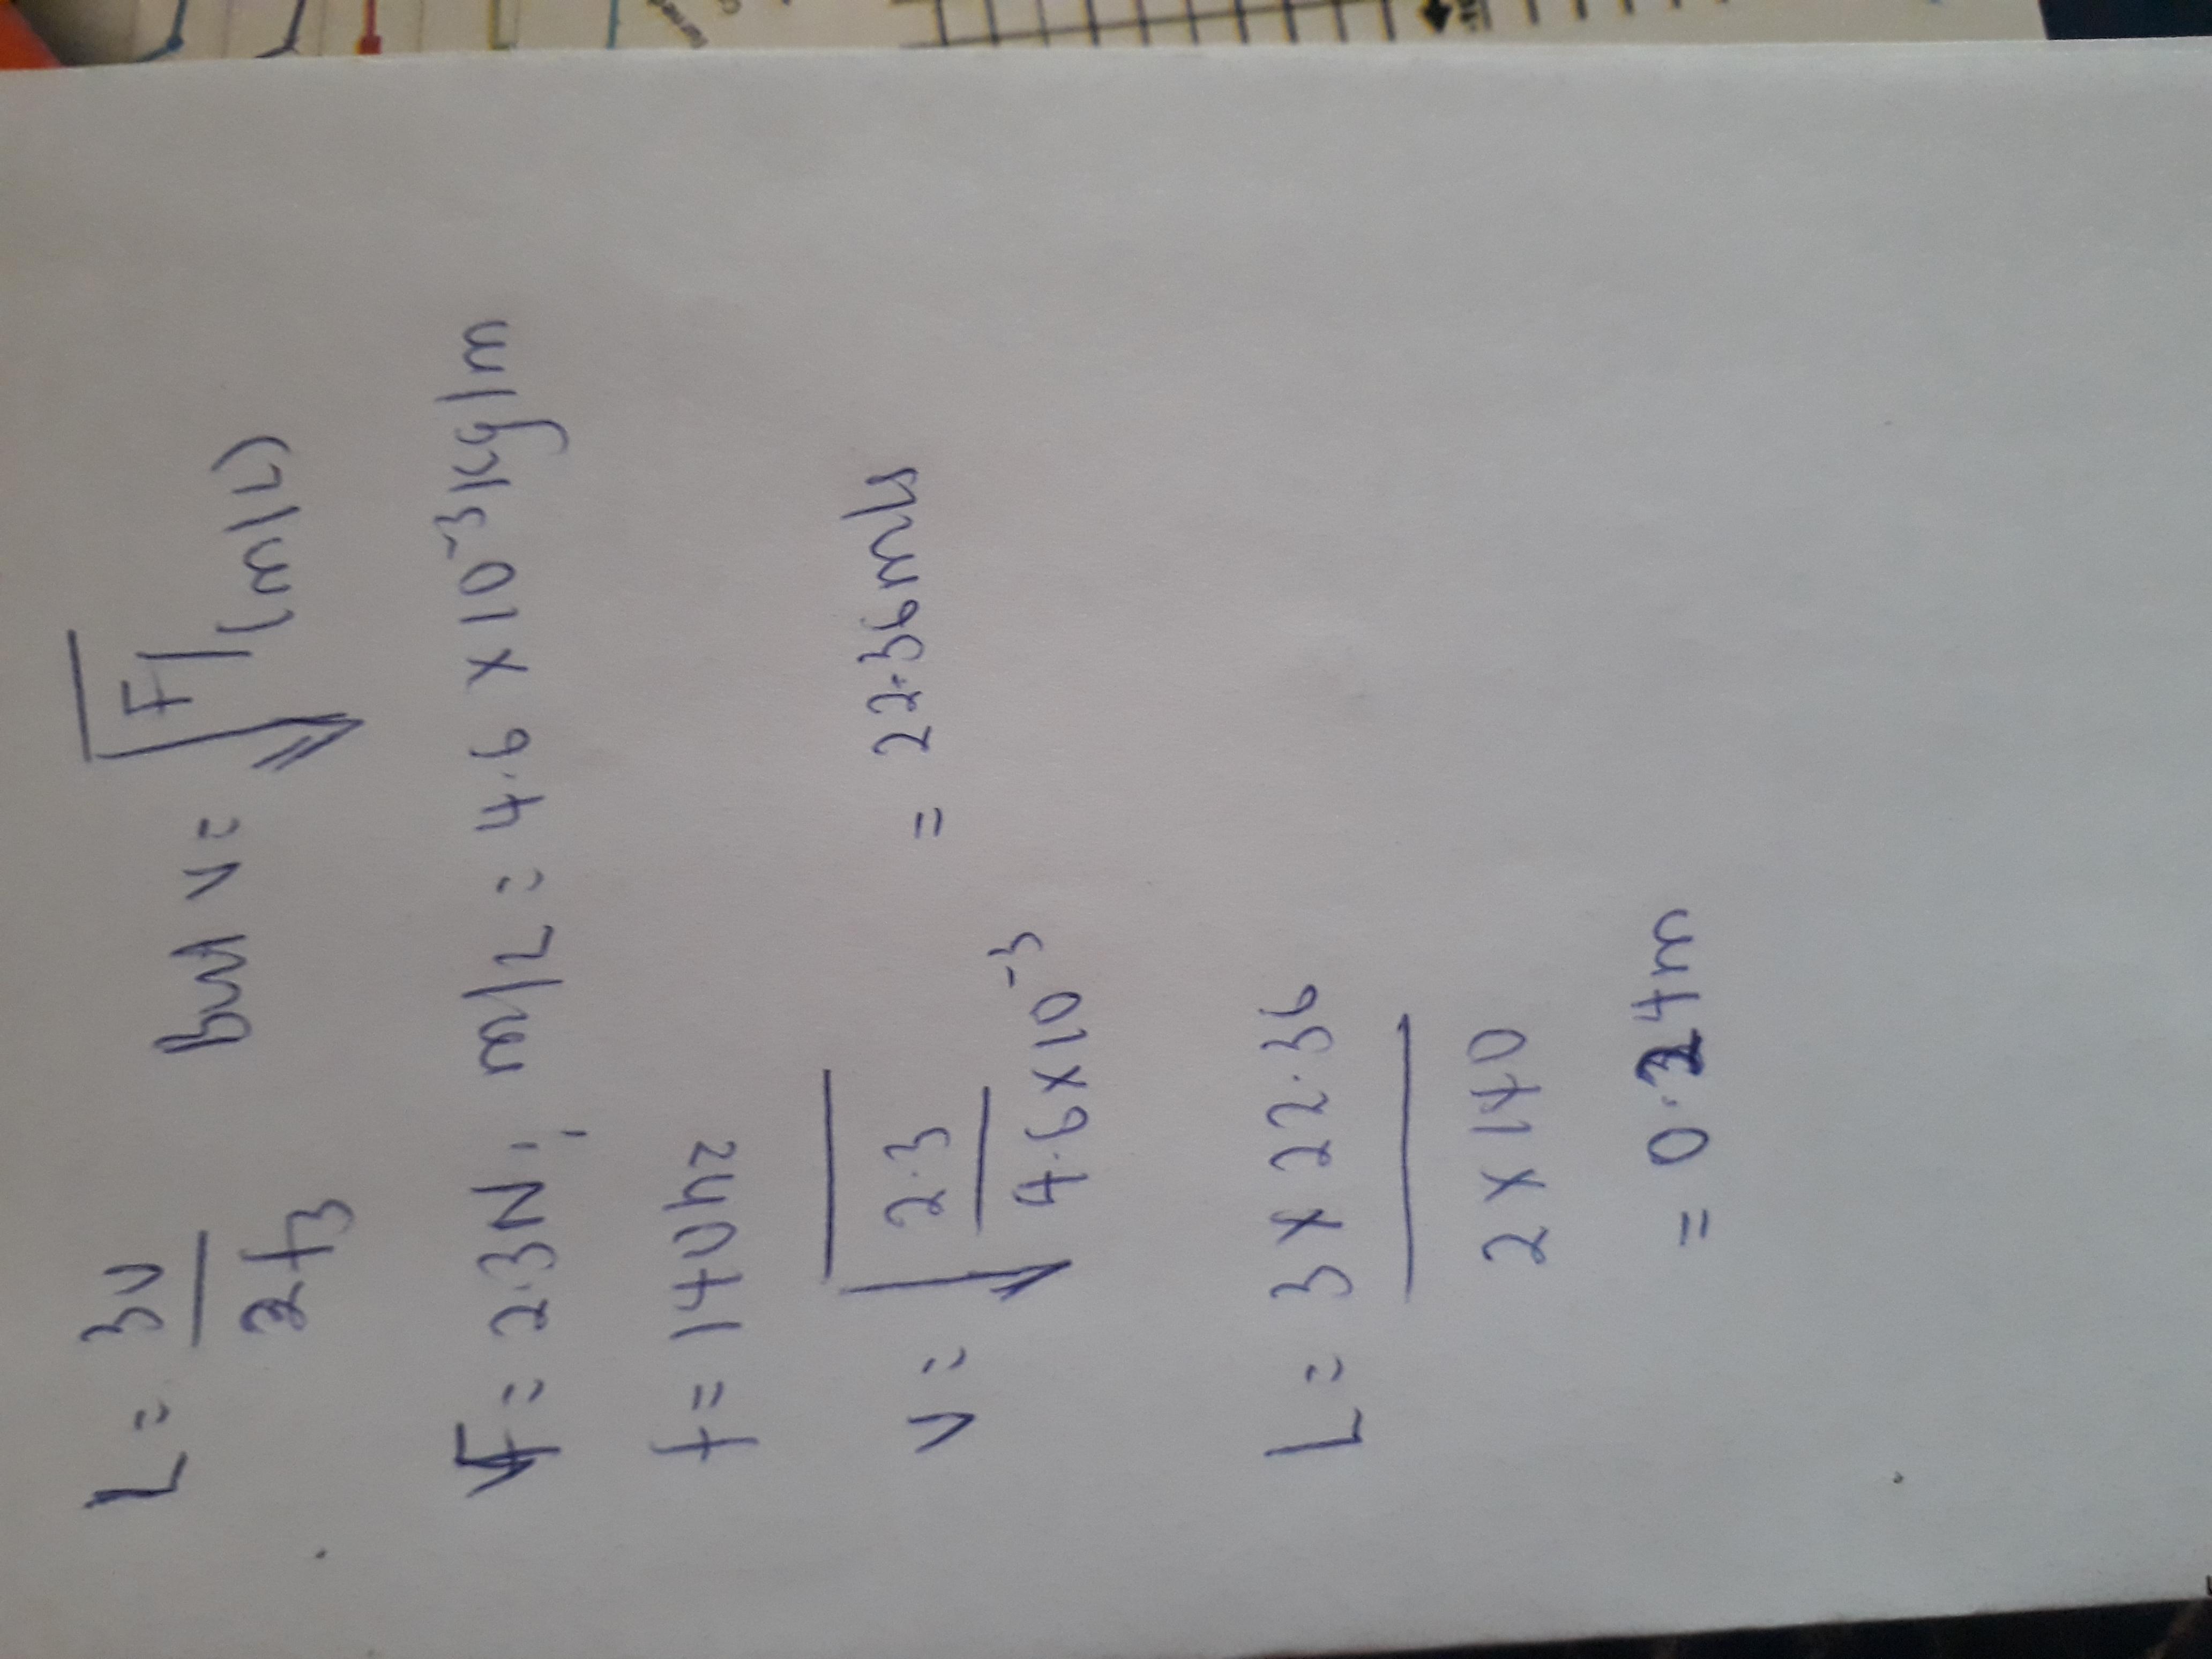 L = 3v / 2f3   But v = √F/(m/L)
F = 2.3N; m/L = 4.6 x 10⁻³kg/m
f = 140hz
v = √2.3 / 4.6x10⁻³ = 22.36m/s
L = 3 x 22.36 / 2 x 140
= 0.24m